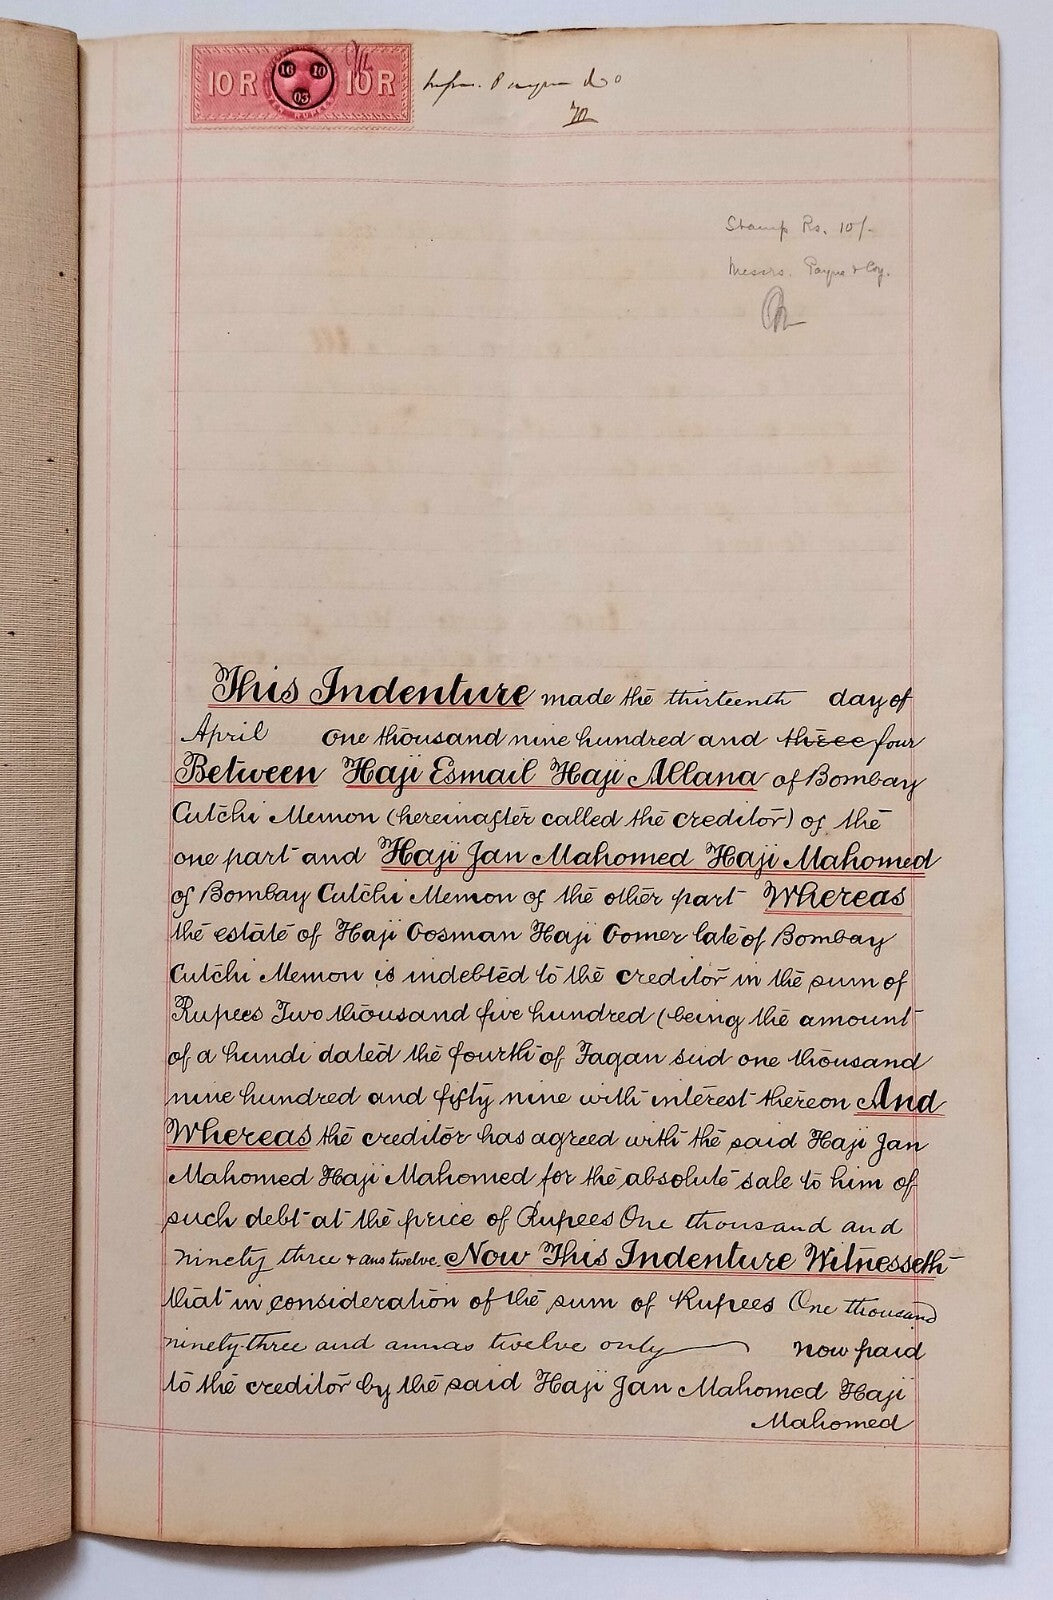 10 R 10 10 03 10 R
TEN RUPEES
Payne & Co
Stamp Rs. 10/-
Messrs. Payne & Coy.
This Indenture made the thirteenth day of
April one thousand nine hundred and three four
Between Haji Esmail Haji Allana of Bombay
Cutchi Memon (hereinafter called the creditor) of the
one part and Haji Jan Mahomed Haji Mahomed
of Bombay Cutchi Memon of the other part Whereas
the estate of Haji Oosman Haji Oomer late of Bombay
Cutchi Memon is indebted to the creditor in the sum of
Rupees Two thousand five hundred (being the amount
of a hundi dated the fourth of Fagan sud one thousand
nine hundred and fifty nine with interest thereon And
Whereas the creditor has agreed with the said Haji Jan
Mahomed Haji Mahomed for the absolute sale to him of
such debt at the price of Rupees One thousand and
ninety three & ans twelve. Now This Indenture Witnesseth
that in consideration of the sum of Rupees One thousand
ninety-three and annas twelve only now paid
to the creditor by the said Haji Jan Mahomed Haji
Mahomed